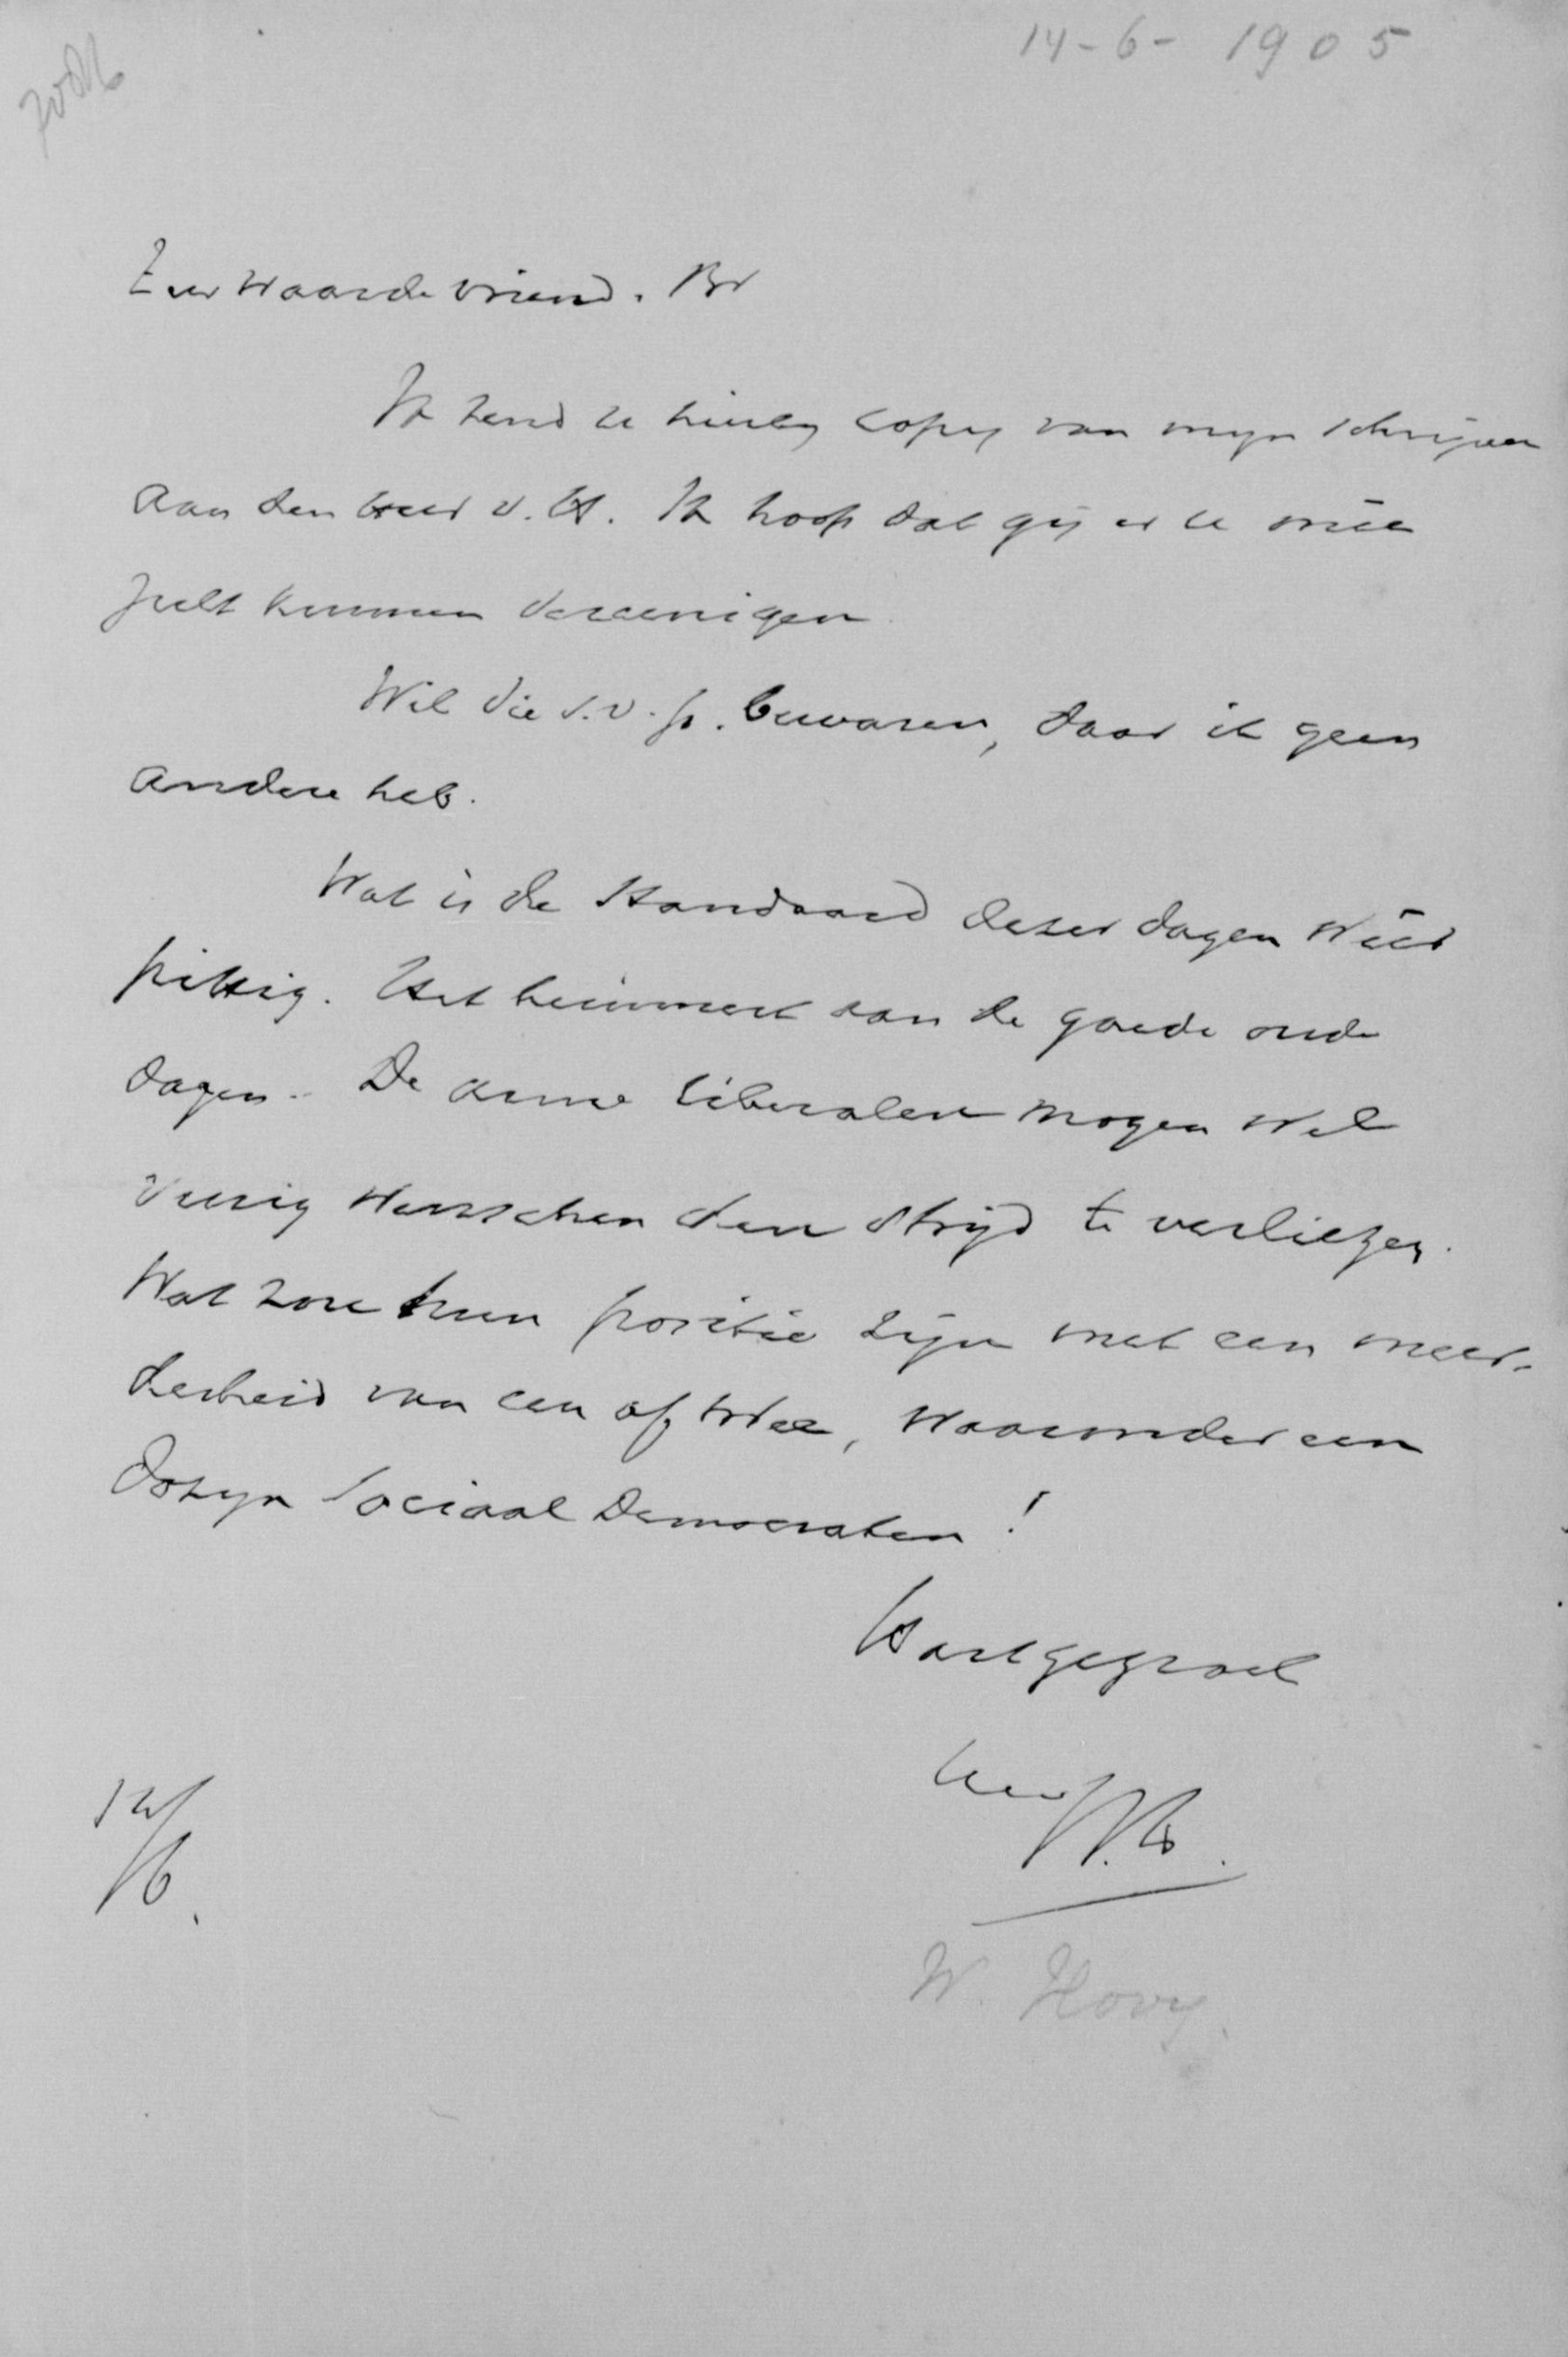 14-6-1905
Zeer Waarde vriend. Br
Ik zend u hierby copy van myn schrijven
aan den heer v. H. Ik hoop dat gij er u mêe
zult kunnen vereenigen
Wil die s.v.p. bewaren, daar ik geen
andere heb.
Wat is de Standaard dezer dagen wêer
pittig. Het herinnert aan de goede oude
dagen. De arme liberalen mogen wel
vurig wenschen den stryd te verliezen.
Wat zou hun positie zijn met een meer-
derheid van een of twee, waaronder een
dozyn Sociaal Democraten!
Hartgegroet
Uw W.H.
12/6.
W. Hovy.